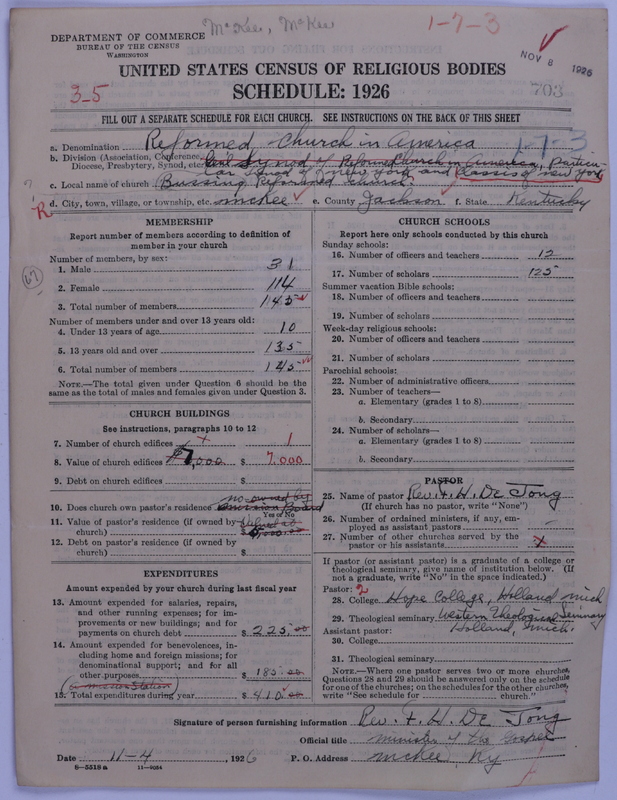 McKee, McKee
1-7-3
DEPARTMENT OF COMMERCE
BUREAU OF THE CENSUS
WASHINGTON
NOV 8 1926
UNITED STATES CENSUS OF RELIGIOUS BODIES
3-5
SCHEDULE: 1926
703
FILL OUT A SEPARATE SCHEDULE FOR EACH CHURCH. SEE INSTRUCTIONS ON THE BACK OF THIS SHEET
a. Denomination Reformed Church in America
1-7-3
b. Division (Association, Conference, Diocese, Presbytery, Synod, etc. Synod of Reformed Church in America, Particu-
lar Synod of New York and Classis of New York
c. Local name of church Reformed Church.
d. City, town, village, or township, etc. McKee e. County Jackson f. State Kentucky
R
67
MEMBERSHIP
Report number of members according to definition of member in your church
Number of members, by sex:
1. Male 31
2. Female 114
3. Total number of members 145
Number of members under and over 13 years old:
4. Under 13 years of age 10
5. 13 years old and over 135
6. Total number of members 145
NOTE.—The total given under Question 6 should be the same as the total of males and females given under Question 3.
CHURCH BUILDINGS
See instructions, paragraphs 10 to 12
7. Number of church edifices 1
8. Value of church edifices $ 7,000
9. Debt on church edifices $
10. Does church own pastor's residence no owned by Board
Yes or No
11. Value of pastor's residence (if owned by church) $
12. Debt on pastor's residence (if owned by church) $
EXPENDITURES
Amount expended by your church during last fiscal year
13. Amount expended for salaries, repairs, and other running expenses; for improvements or new buildings; and for payments on church debt $ 225.00
14. Amount expended for benevolences, including home and foreign missions; for denominational support; and for all other purposes $ 185.00
(a mission station)
15. Total expenditures during year $ 410.00
CHURCH SCHOOLS
Report here only schools conducted by this church
Sunday schools:
16. Number of officers and teachers 12
17. Number of scholars 125
Summer vacation Bible schools:
18. Number of officers and teachers
19. Number of scholars
Week-day religious schools:
20. Number of officers and teachers
21. Number of scholars
Parochial schools:
22. Number of administrative officers
23. Number of teachers—
a. Elementary (grades 1 to 8)
b. Secondary
24. Number of scholars—
a. Elementary (grades 1 to 8)
b. Secondary
PASTOR
25. Name of pastor Rev. H. De Jong
(If church has no pastor, write "None")
26. Number of ordained ministers, if any, employed as assistant pastors
27. Number of other churches served by the pastor or his assistants x
If pastor (or assistant pastor) is a graduate of a college or theological seminary, give name of institution below. (If not a graduate, write "No" in the space indicated.)
Pastor: 2
28. College Hope College, Holland Mich
29. Theological seminary Western Theological Seminary
Assistant pastor: Holland, Mich.
30. College
31. Theological seminary
NOTE.—Where one pastor serves two or more churches, Questions 28 and 29 should be answered only on the schedule for one of the churches; on the schedules for the other churches, write "See schedule for church."
Signature of person furnishing information Rev. H. De Jong
Official title minister of the Gospel
Date 11-4, 1926 P. O. Address McKee, Ky
8-5518a 11-9034